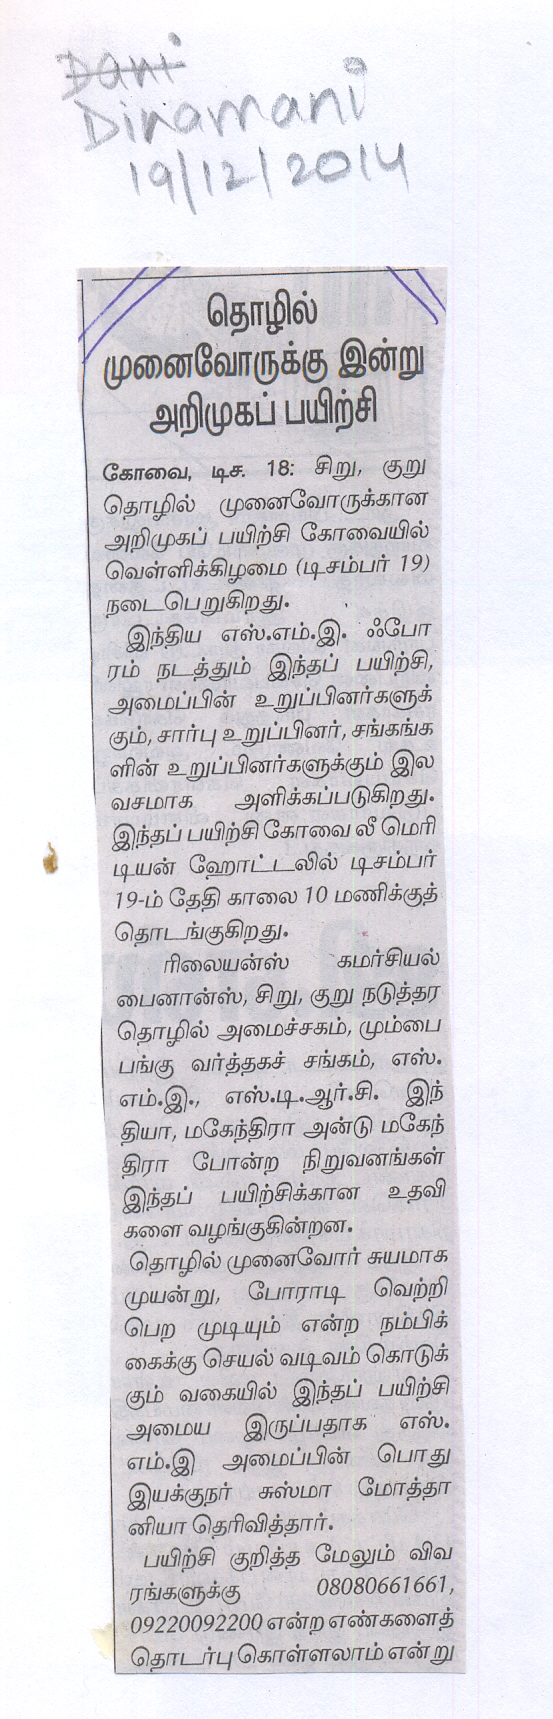 Dani
Dinamani
19/12/2014
தொழில்
முனைவோருக்கு இன்று
அறிமுகப் பயிற்சி
கோவை, டிச. 18: சிறு, குறு
தொழில் முனைவோருக்கான
அறிமுகப் பயிற்சி கோவையில்
வெள்ளிக்கிழமை (டிசம்பர் 19)
நடைபெறுகிறது.
இந்திய எஸ்.எம்.இ. ஃபோ
ரம் நடத்தும் இந்தப் பயிற்சி,
அமைப்பின் உறுப்பினர்களுக்
கும், சார்பு உறுப்பினர், சங்கங்க
ளின் உறுப்பினர்களுக்கும் இல
வசமாக அளிக்கப்படுகிறது.
இந்தப் பயிற்சி கோவை லீ மெரி
டியன் ஹோட்டலில் டிசம்பர்
19-ம் தேதி காலை 10 மணிக்குத்
தொடங்குகிறது.
ரிலையன்ஸ் கமர்சியல்
பைனான்ஸ், சிறு, குறு நடுத்தர
தொழில் அமைச்சகம், மும்பை
பங்கு வர்த்தகச் சங்கம், எஸ்.
எம்.இ., எஸ்.டி.ஆர்.சி. இந்
தியா, மகேந்திரா அன்டு மகேந்
திரா போன்ற நிறுவனங்கள்
இந்தப் பயிற்சிக்கான உதவி
களை வழங்குகின்றன.
தொழில் முனைவோர் சுயமாக
முயன்று, போராடி வெற்றி
பெற முடியும் என்ற நம்பிக்
கைக்கு செயல் வடிவம் கொடுக்
கும் வகையில் இந்தப் பயிற்சி
அமைய இருப்பதாக எஸ்.
எம்.இ அமைப்பின் பொது
இயக்குநர் சுஸ்மா மோத்தா
னியா தெரிவித்தார்.
பயிற்சி குறித்த மேலும் விவ
ரங்களுக்கு 08080661661,
09220092200 என்ற எண்களைத்
தொடர்பு கொள்ளலாம் என்று